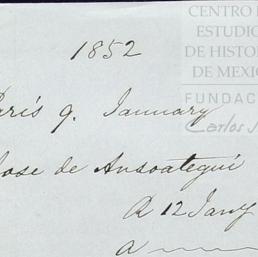 CENTRO D
ESTUDIO
DE HISTOR
DE MEXI
FUNDAC
Carlos
1852
Paris 9. January
Jose de Ansoategui
A 12 Jany
a